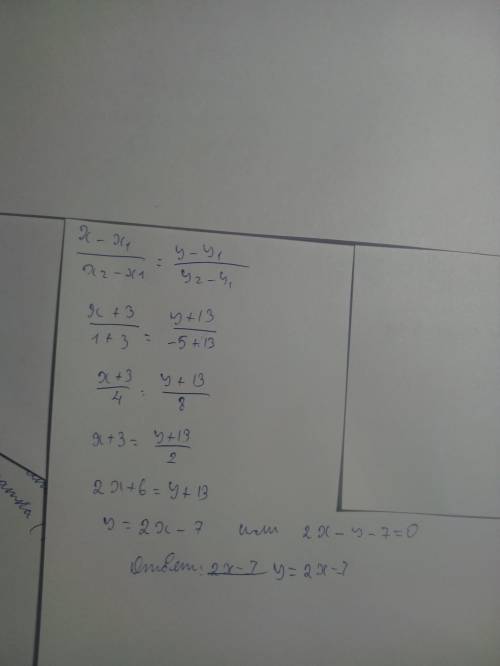 (x - x₁)/(x₂ - x₁) = (y - y₁)/(y₂ - y₁)
(x + 3)/(1 + 3) = (y + 13)/(-5 + 13)
(x + 3)/4 = (y + 13)/8
x + 3 = (y + 13)/2
2x + 6 = y + 13
y = 2x - 7 или 2x - y - 7 = 0
Ответ: 2x - 7 y = 2x - 7